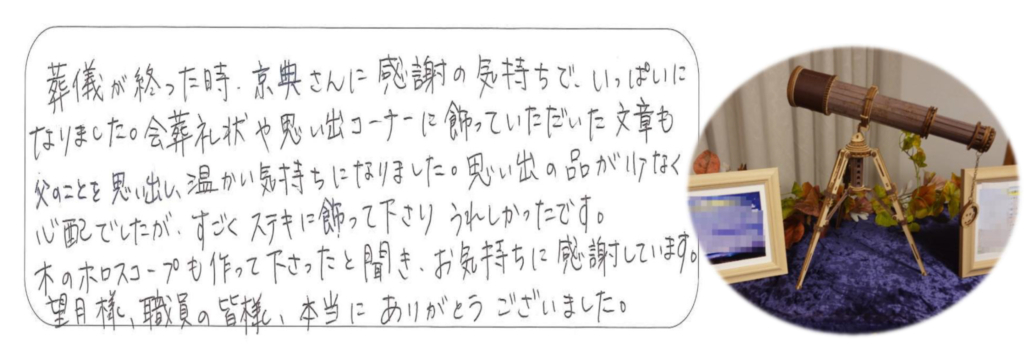 葬儀が終った時、京典さんに感謝の気持ちで、いっぱいに
なりました。会葬礼状や思い出コーナーに飾っていただいた文章も
父のことを思い出し、温かい気持ちになりました。思い出の品が少なく
心配でしたが、すごくステキに飾って下さり うれしかったです。
木のホロスコープも作って下さったと聞き、お気持ちに感謝しています。
望月様、職員の皆様、本当に ありがとう ございました。